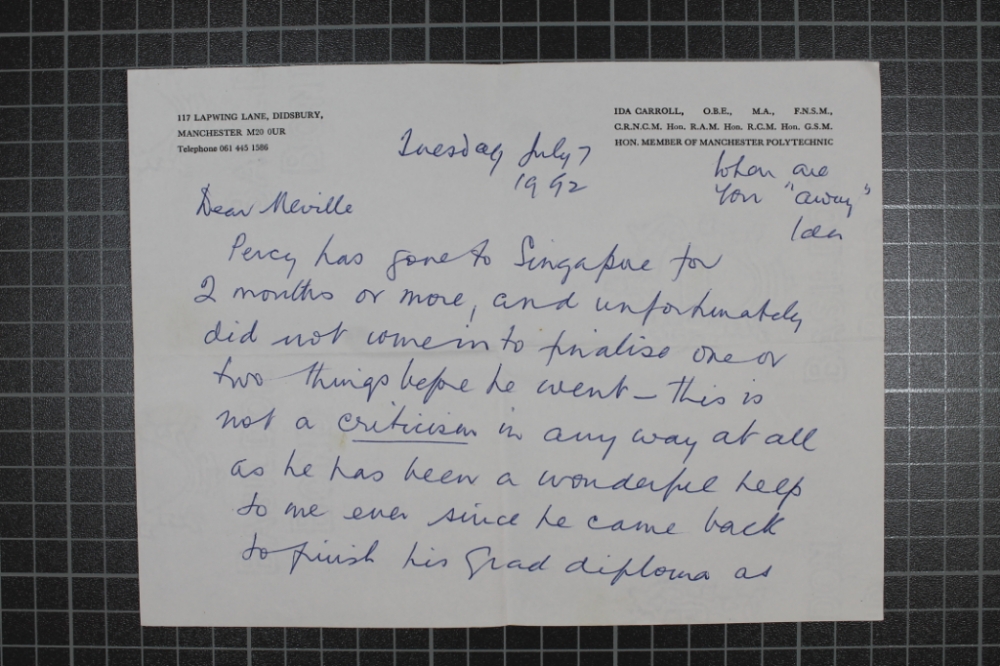 117 LAPWING LANE, DIDSBURY,
MANCHESTER M20 0UR
Telephone 061 445 1586
IDA CARROLL, O.B.E., M.A., F.N.S.M.,
C.R.N.C.M. Hon. R.A.M. Hon. R.C.M. Hon. G.S.M.
HON. MEMBER OF MANCHESTER POLYTECHNIC
Tuesday July 7
1992
When are
you "away"
Ida
Dear Neville
Percy has gone to Singapore for
2 months or more, and unfortunately
did not come in to finalise one or
two things before he went – this is
not a criticism in any way at all
as he has been a wonderful help
to me ever since he came back
to finish his Grad diploma as